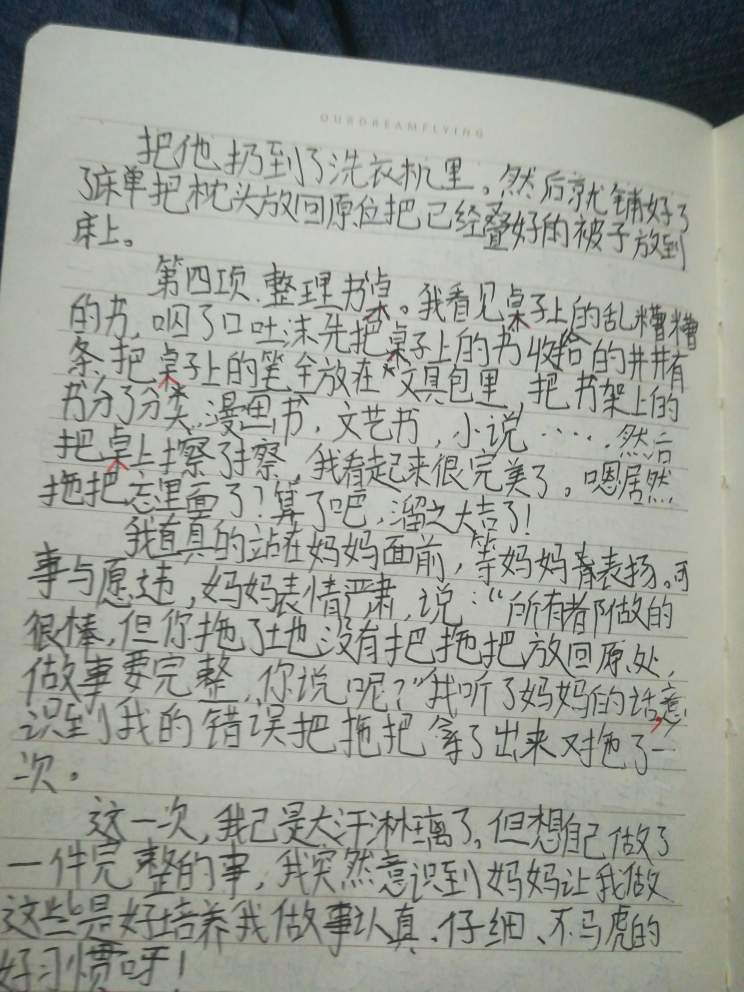 OURDREAMFLYING
把他扔到了洗衣机里。然后就铺好了
了床单把枕头放回原位把已经叠好的被子放到
床上。
第四项、整理书桌。我看见桌子上的乱糟糟
的书，咽了口吐沫先把桌子上的书收拾的井井有
条,把桌子上的笔全放在文具包里，把书架上的
书分了分类,漫画书，文艺书，小说…….然后
把桌上擦了擦，我看起来很完美了。嗯居然
拖把忘里面了？算了吧，溜之大吉了！
我直真的站在妈妈面前，等妈妈表扬。可
事与愿违，妈妈表情严肃,说：“所有都做的
很棒，但你拖了地没有把拖把放回原处，
做事要完整，你说呢？”我听了妈妈的话,意
识到我的错误把拖把拿了出来又拖了一
次。
这一次，我已是大汗淋璃了。但想自己做了
一件完整的事，我突然意识到妈妈让我做
这些是好培养我做事认真、仔细、不马虎的
好习惯呀！